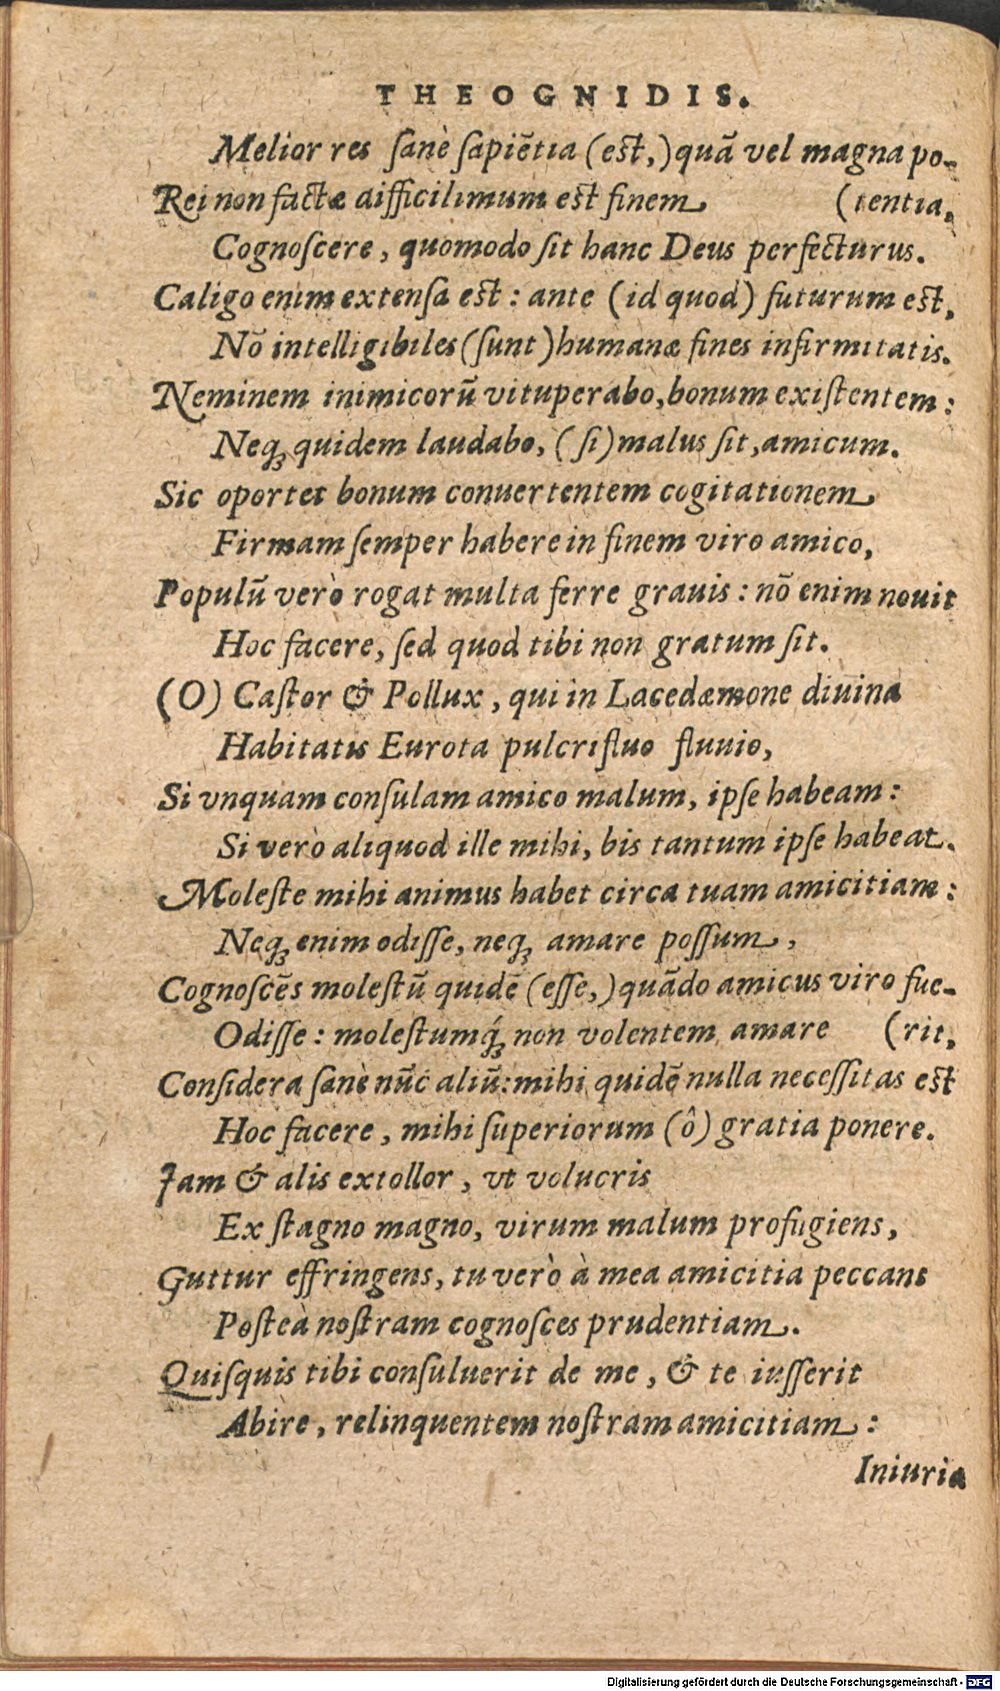 THEOGNIDIS.
Melior res ſanè ſapiẽtia (eſt,) quã vel magna po-
Rei non factæ difficilimum eſt finem (tentia,
Cognoſcere, quomodo ſit hanc Deus perfecturus.
Caligo enim extenſa eſt: ante (id quod) futurum eſt,
Nõ intelligibiles (ſunt) humanæ fines infirmitatis.
Neminem inimicorũ vituperabo, bonum exiſtentem:
Neqꝫ quidem laudabo, (ſi) malus ſit, amicum.
Sic oportet bonum conuertentem cogitationem
Firmam ſemper habere in finem viro amico,
Populũ verò rogat multa ferre grauis: nõ enim nouit
Hoc facere, ſed quod tibi non gratum ſit.
(O) Caſtor & Pollux, qui in Lacedæmone diuina
Habitatis Eurota pulcrifluo fluuio,
Si vnquam conſulam amico malum, ipſe habeam:
Si verò aliquod ille mihi, bis tantum ipſe habeat.
Moleſte mihi animus habet circa tuam amicitiam:
Neqꝫ enim odiſſe, neqꝫ amare poſſum,
Cognoſcẽs moleſtũ quidẽ (eſſe,) quãdo amicus viro fue-
Odiſſe: moleſtumq́ꝫ non volentem amare (rit,
Conſidera ſanè nũc aliũ: mihi quidẽ nulla neceſſitas eſt
Hoc facere, mihi ſuperiorum (ô) gratia ponere.
Jam & alis extollor, vt volucris
Ex ſtagno magno, virum malum profugiens,
Guttur effringens, tu verò à mea amicitia peccans
Poſteà noſtram cognoſces prudentiam.
Quiſquis tibi conſuluerit de me, & te iuſſerit
Abire, relinquentem noſtram amicitiam:
Iniuria
Digitalisierung gefördert durch die Deutsche Forschungsgemeinschaft - DFG